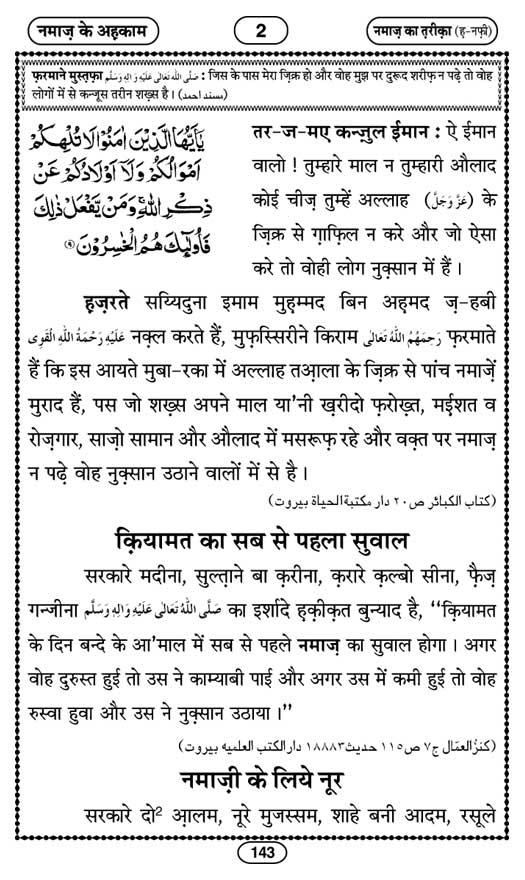 नमाज़ के अहकाम
2
नमाज़ का तरीक़ा (ह-नफ़ी)
फ़रमाने मुस्तफ़ा صَلَّى اللهُ تَعَالٰى عَلَيْهِ وَاٰلِهٖ وَسَلَّم : जिस के पास मेरा ज़िक्र हो और वोह मुझ पर दुरूद शरीफ़ न पढ़े तो वोह
लोगों में से कन्जूस तरीन शख़्स है। (مسند احمد)
يٰۤاَيُّهَا الَّذِيْنَ اٰمَنُوْا لَا تُلْهِكُمْ
اَمْوَالُكُمْ وَلَاۤ اَوْلَادُكُمْ عَنْ
ذِكْرِ اللّٰهِۚ وَمَنْ يَّفْعَلْ ذٰلِكَ
فَاُولٰٓئِكَ هُمُ الْخٰسِرُوْنَ ﴿۹﴾
तर-ज-मए कन्ज़ुल ईमान : ऐ ईमान
वालो ! तुम्हारे माल न तुम्हारी औलाद
कोई चीज़ तुम्हें अल्लाह (عَزَّوَجَلَّ) के
ज़िक्र से ग़ाफ़िल न करे और जो ऐसा
करे तो वोही लोग नुक़्सान में हैं।
हज़रते सय्यिदुना इमाम मुहम्मद बिन अहमद ज़-हबी
عَلَيْهِ رَحْمَةُ اللهِ الْقَوِى नक़्ल करते हैं, मुफ़स्सिरीने किराम رَحِمَهُمُ اللهُ تَعَالٰى फ़रमाते
हैं कि इस आयते मुबा-रका में अल्लाह तआ़ला के ज़िक्र से पांच नमाज़ें
मुराद हैं, पस जो शख़्स अपने माल या'नी ख़रीदो फ़रोख़्त, मईशत व
रोज़गार, साज़ो सामान और औलाद में मसरूफ़ रहे और वक़्त पर नमाज़
न पढ़े वोह नुक़्सान उठाने वालों में से है।
(كتاب الكبائر ص٢٠ دار مكتبة الحياة بيروت)
क़ियामत का सब से पहला सुवाल
सरकारे मदीना, सुल्ताने बा क़रीना, क़रारे क़ल्बो सीना, फ़ैज़
गन्जीना صَلَّى اللهُ تَعَالٰى عَلَيْهِ وَاٰلِهٖ وَسَلَّم का इर्शादे ह़क़ीक़त बुन्याद है, ‘‘क़ियामत
के दिन बन्दे के आ'माल में सब से पहले नमाज़ का सुवाल होगा। अगर
वोह दुरुस्त हुई तो उस ने काम्याबी पाई और अगर उस में कमी हुई तो वोह
रुस्वा हुवा और उस ने नुक़्सान उठाया।’’
(كنزُ العمّال ج٧ ص١١٥ حديث١٨٨٨٣ دارالكتب العلميه بيروت)
नमाज़ी के लिये नूर
सरकारे दो² आ़लम, नूरे मुजस्सम, शाहे बनी आदम, रसूले
143